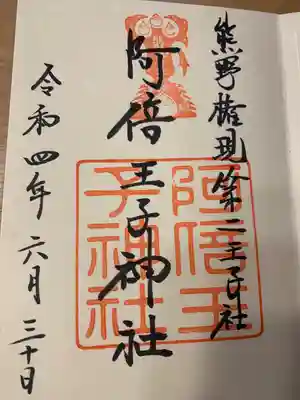 熊野権現第二王子社
阿倍王子神社
阿倍王
子神社
令和四年六月三十日